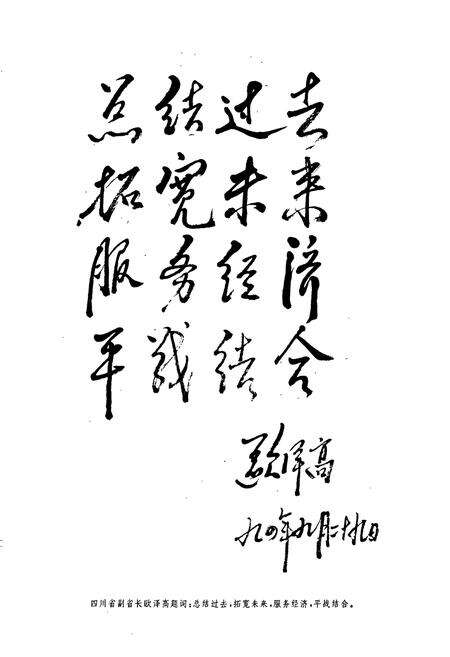 总结过去
拓宽未来
服务经济
平战结合
欧泽高
九四年九月二十九日
四川省副省长欧泽高题词：总结过去，拓宽未来，服务经济，平战结合。